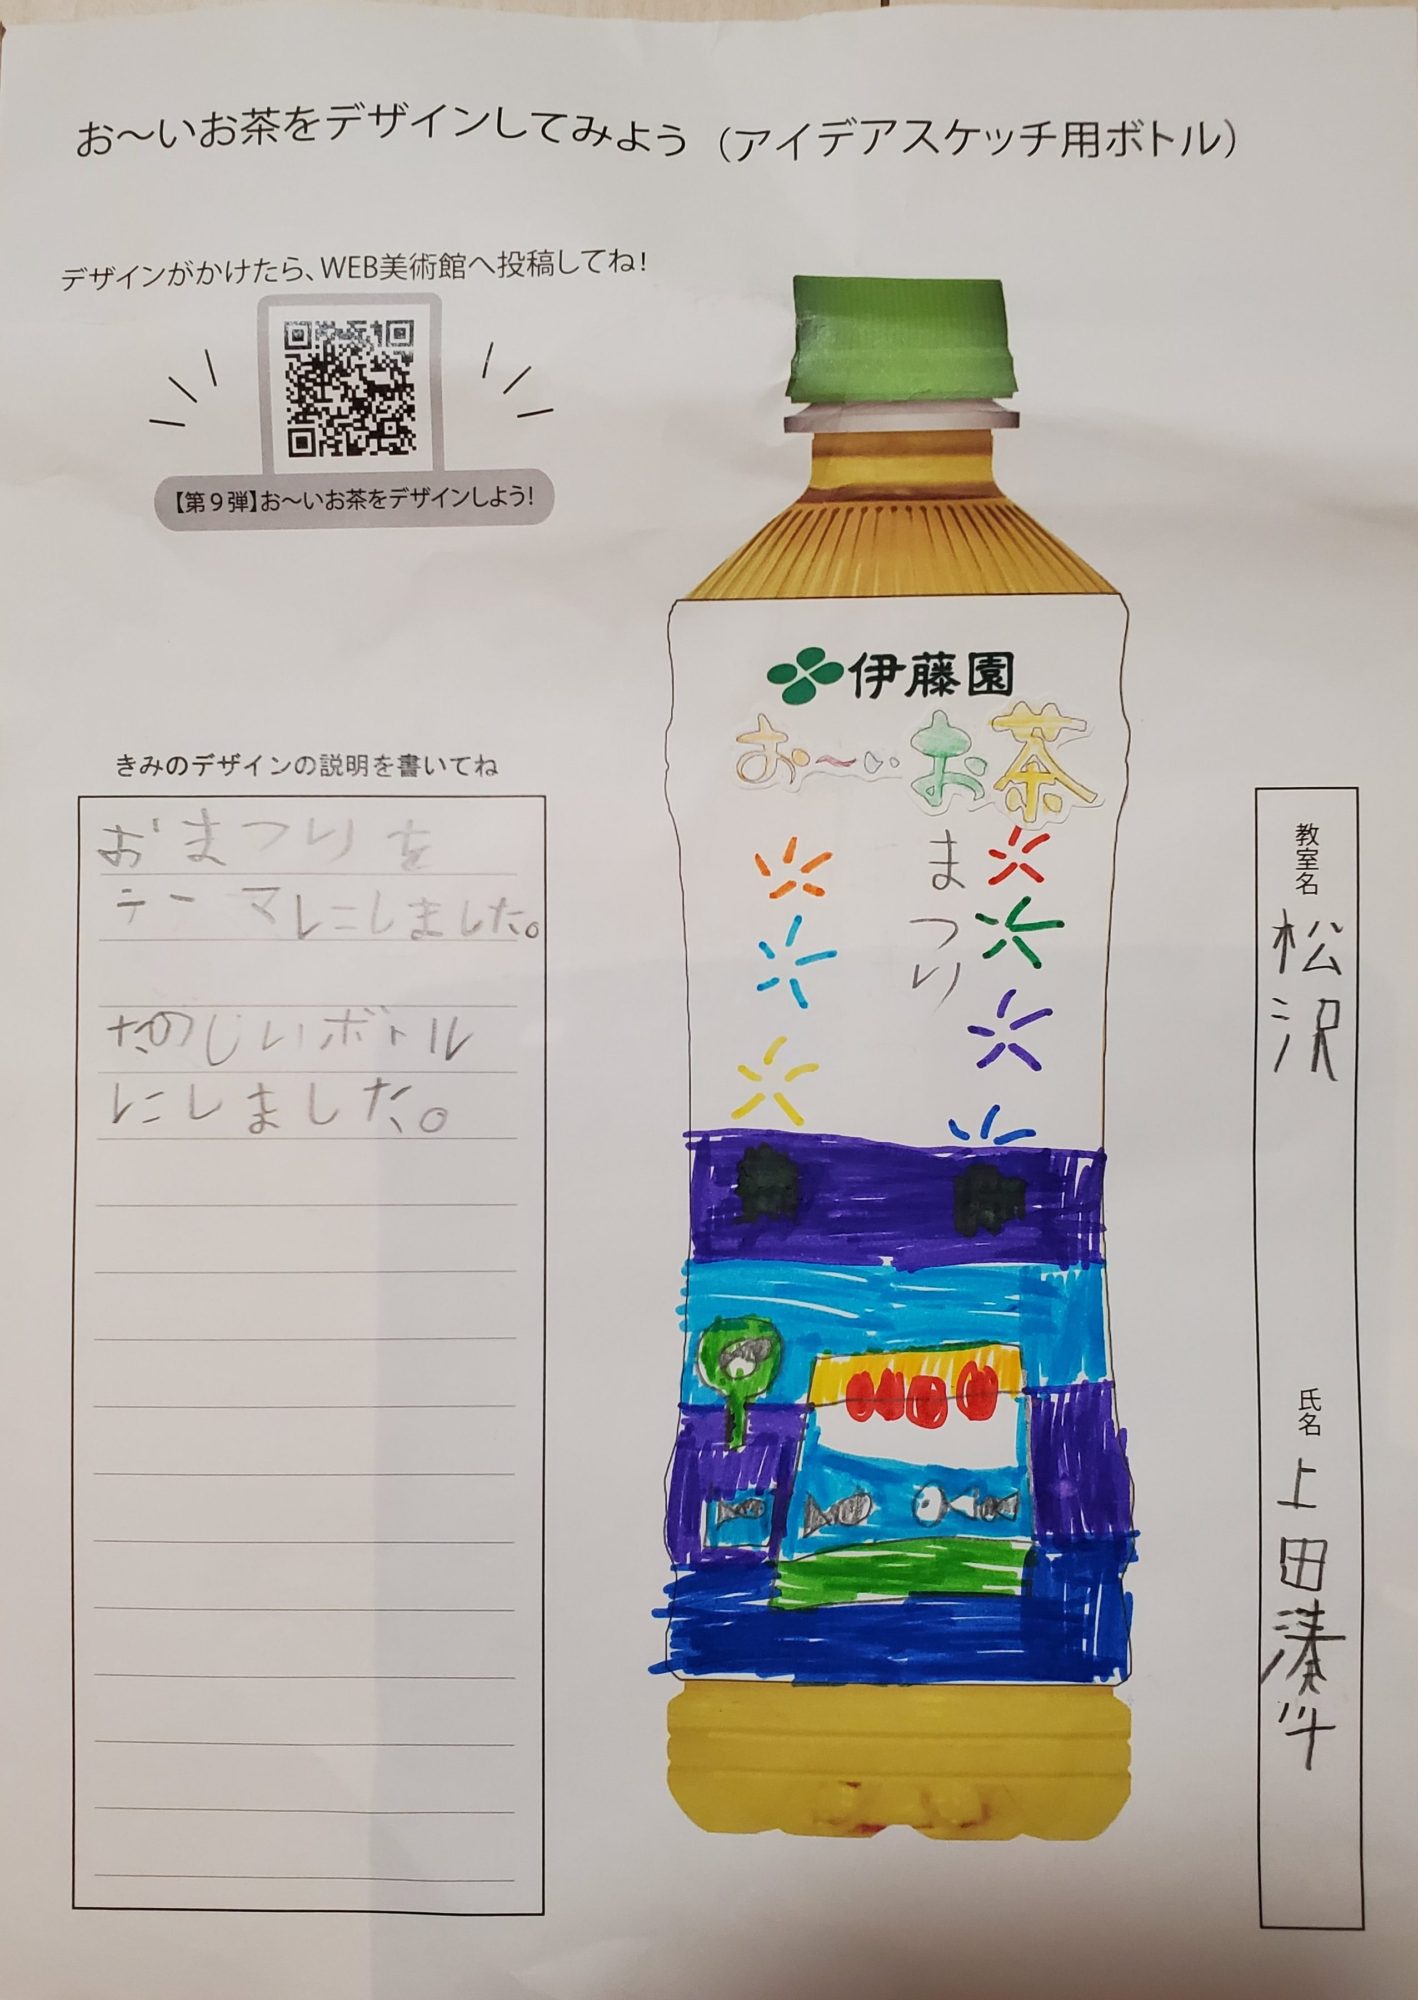 お～いお茶をデザインしてみよう（アイデアスケッチ用ボトル）
デザインがかけたら、WEB美術館へ投稿してね！
【第９弾】お～いお茶をデザインしよう！
伊藤園
お～いお茶
まつり
きみのデザインの説明を書いてね
おまつりを
テーマにしました。
たのしいボトル
にしました。
教室名
松沢
氏名
上田湊斗